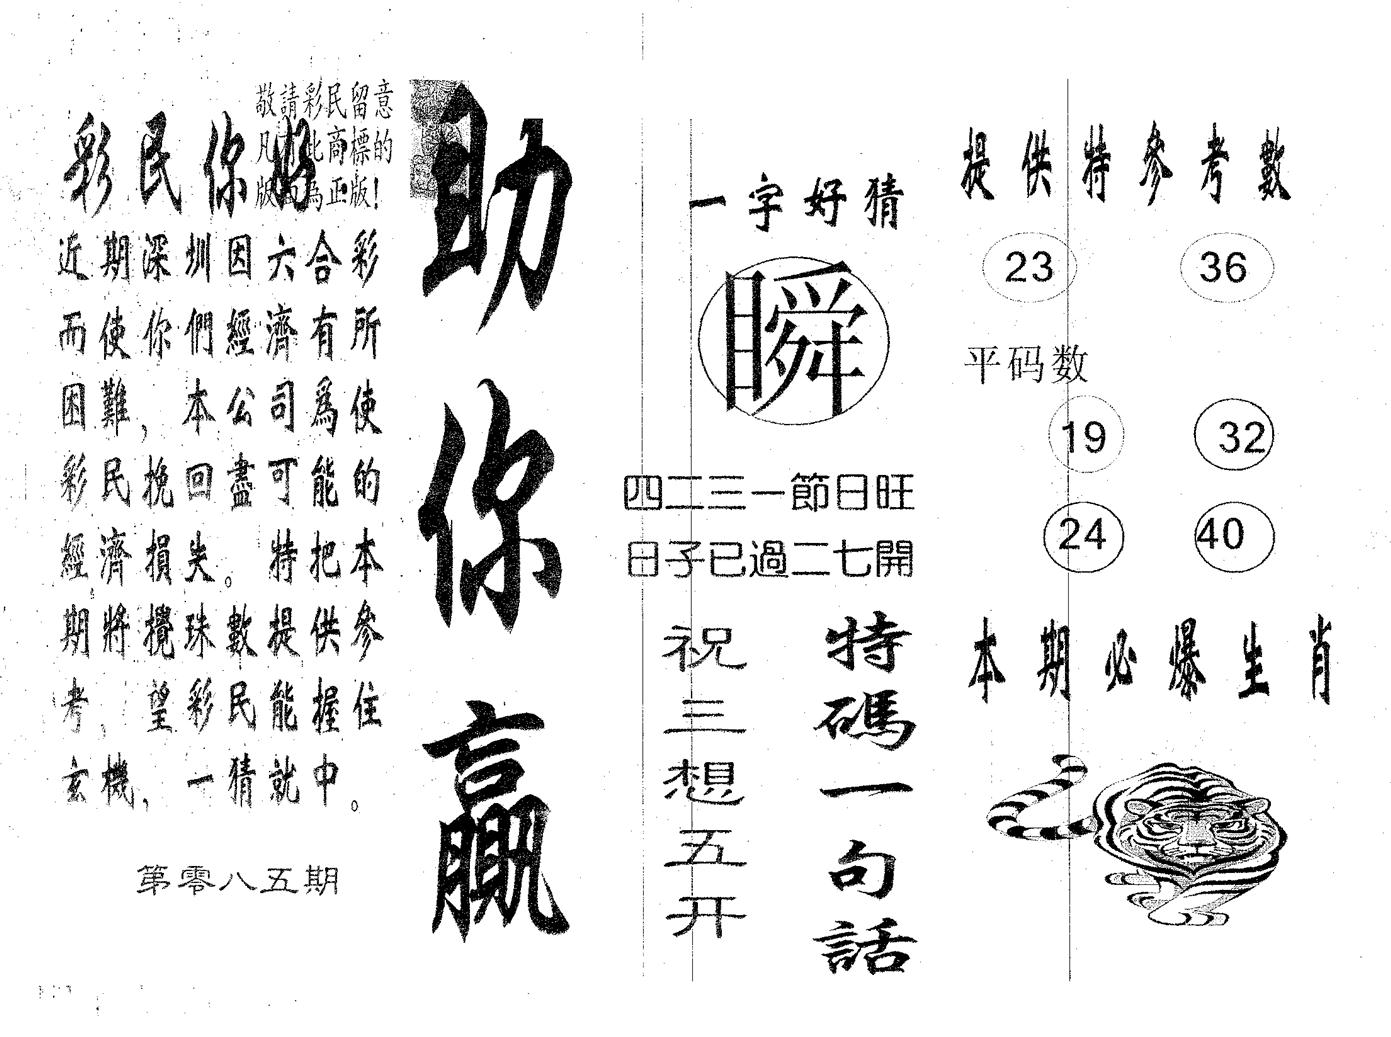 敬請彩民留意
凡 此商標的
版 為正版!
彩民你好
近期深圳因六合彩
而使你們經濟有所
困難，本公司為使
彩民挽回盡可能的
經濟損失。特把本
期將攪珠數提供參
考，望彩民能握住
玄機，一猜就中。
第零八五期
助你贏
一字好猜
瞬
四二三一節日旺
日子已過二七開
特碼一句話
祝三想五开
提供特參考數
23 36
平码数
19 32
24 40
本期必爆生肖